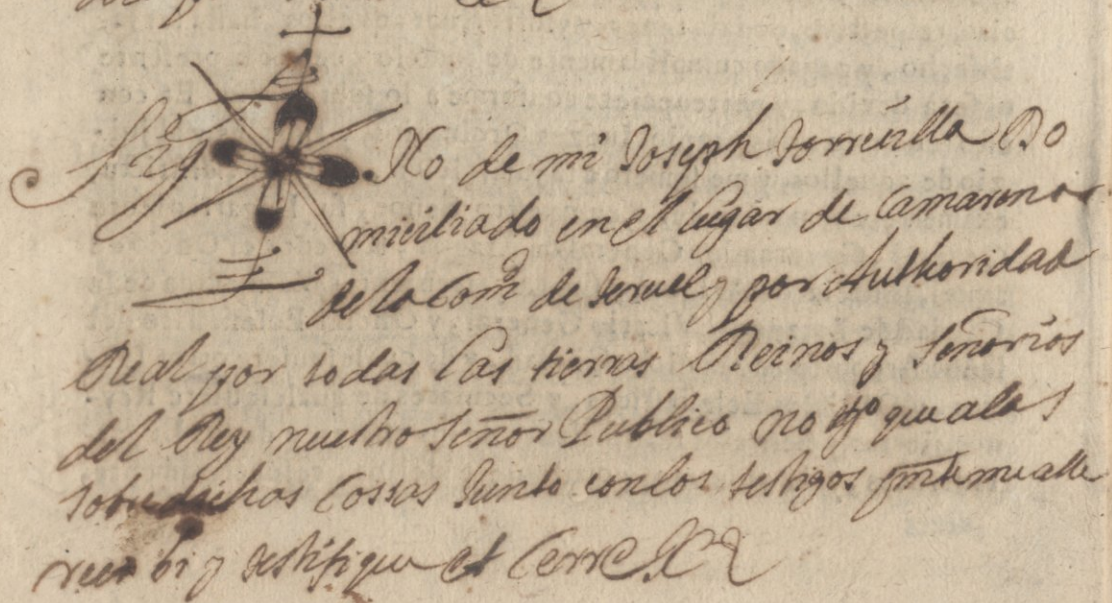 Sig No de mi Joseph Torrecilla Do
miciliado en el lugar de Camarena
de la Comd de Teruel y por Authoridad
Real por todas las tierras Reinos y señorios
del Rey nuestro Señor Publico notro que a las
sobredichas Cossas Junto con los testigos pnte me alle
recebi y testifique et Cerre